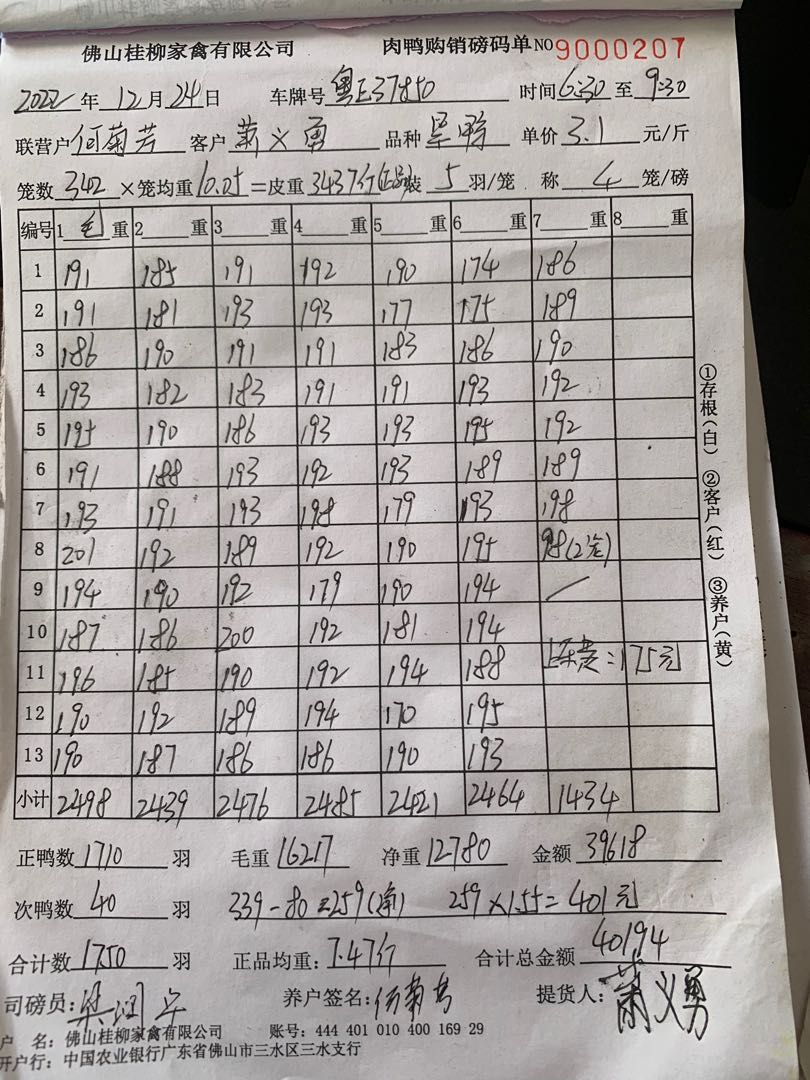 佛山桂柳家禽有限公司 肉鸭购销磅码单 NO 9000207
2022年12月24日 车牌号 粤E37850 时间 6:30 至 9:30
联营户 何菊芳 客户 萧义勇 品种 旱鸭 单价 3.1 元/斤
笼数 342 ×笼均重 10.05 =皮重 3437斤(正品) 装 5 羽/笼 称 4 笼/磅
编号 1 毛 重 2 重 3 重 4 重 5 重 6 重 7 重 8 重
1 191 185 191 192 190 174 186
2 191 181 193 193 177 175 189
3 186 190 191 191 183 186 190
4 193 182 183 191 191 193 192
5 195 190 186 193 193 195 192
6 191 188 193 192 193 189 189
7 193 191 193 198 179 193 198
8 201 192 189 192 190 195 98(2笼)
9 194 190 192 179 190 194 /
10 187 186 200 192 181 194
11 196 185 190 192 194 188 上车费:175元
12 190 192 189 194 170 195
13 190 187 186 186 190 193
小计 2498 2439 2476 2485 2421 2464 1434
正鸭数 1710 羽 毛重 16217 净重 12780 金额 39618
次鸭数 40 羽 339-80=259(净) 259×1.55=401元
合计数 1750 羽 正品均重: 7.47斤 合计总金额 40194
司磅员: 养户签名: 何菊芳 提货人: 萧义勇
户 名: 佛山桂柳家禽有限公司 账号: 444 401 010 400 169 29
开户行: 中国农业银行广东省佛山市三水区三水支行
①存根(白) ②客户(红) ③养户(黄)